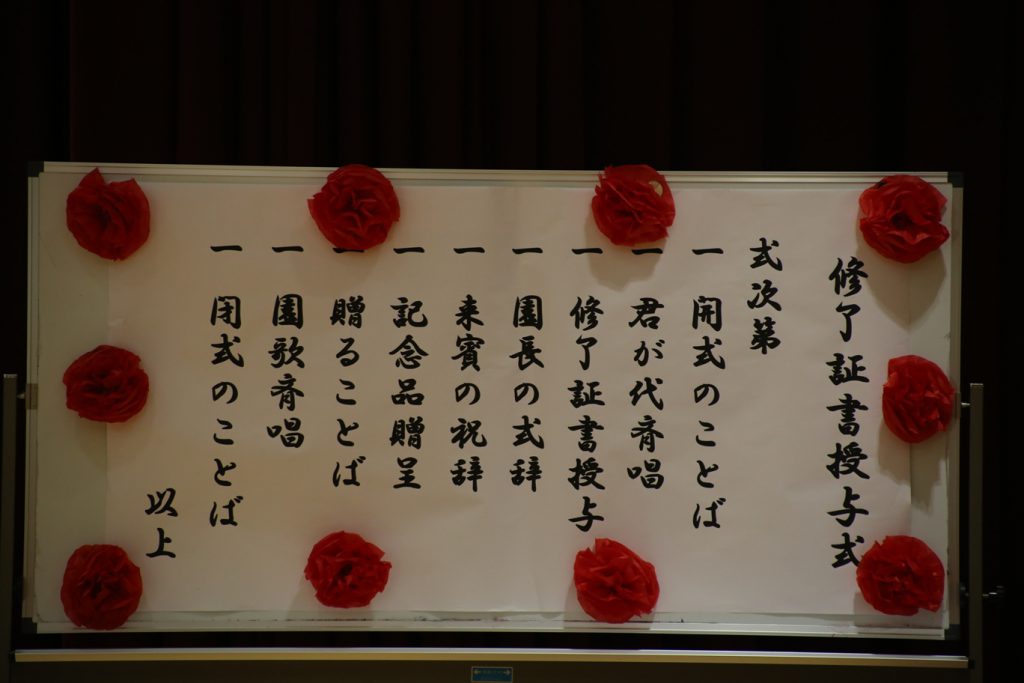 修了証書授与式
式次第
一 開式のことば
一 君が代斉唱
一 修了証書授与
一 園長の式辞
一 来賓の祝辞
一 記念品贈呈
一 贈ることば
一 園歌斉唱
一 閉式のことば
以上